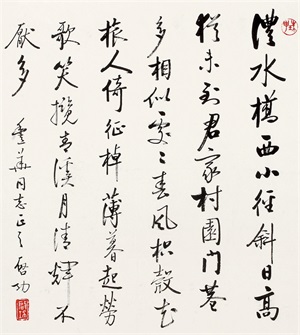 澧水橋西小徑斜日高
猶未到君家村園門巷
多相似處々春風枳殼花
旅人倚征棹薄暮起勞
歌笑攬青溪月清輝不
厭多 華同志正之 啟功